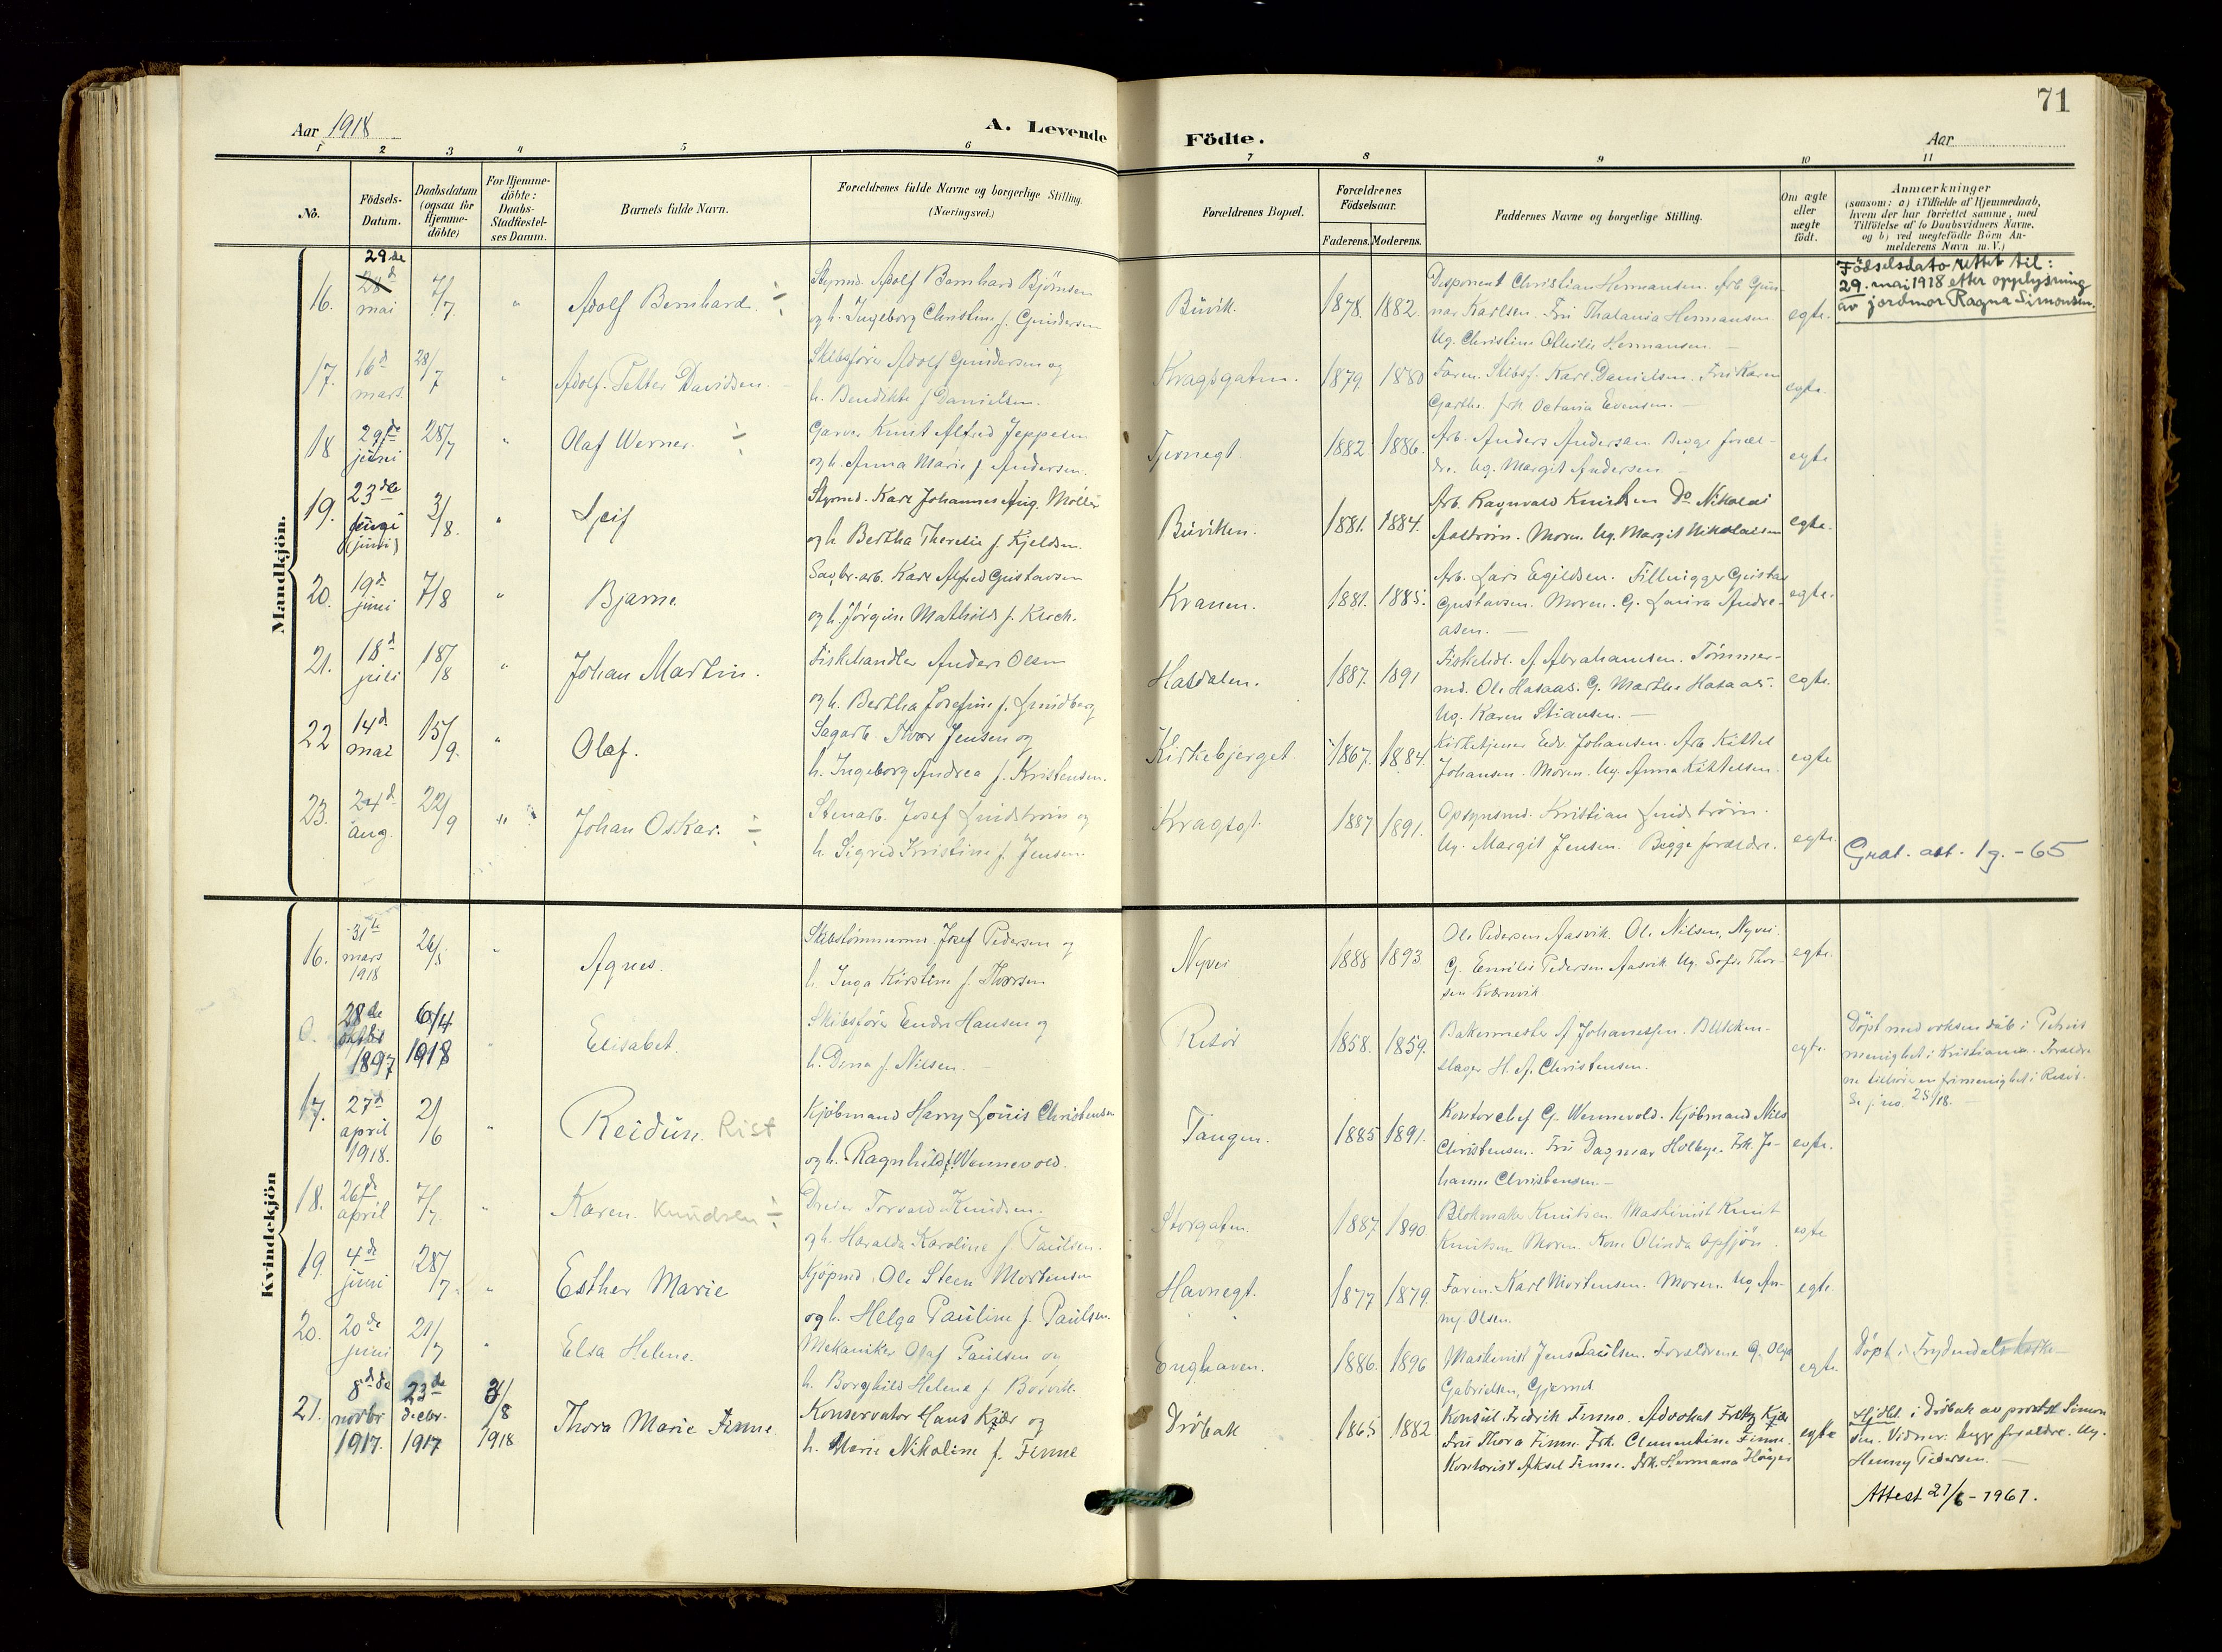 71
Aar 1918
A. Levende Födte.
Aar
1 2 3 4 5 6 7 8 9 10 11
No.
Födsels-Datum.
Daabsdatum (ogsaa for Hjemme-döbte)
For Hjemme-döbte: Daabs-Stadfæstel-ses Datum.
Barnets fulde Navn.
Forældrenes fulde Navne og borgerlige Stilling. (Næringsvei.)
Forældrenes Bopæl.
Forældrenes Födselsaar.
Faderens. Moderens.
Faddernes Navne og borgerlige Stilling.
Om ægte eller uægte födt.
Anmærkninger
(saasom: a) i Tilfælde af Hjemmedaab, hvem der har forrettet samme, med Tilföielse af to Daabsvidners Navne, og b) ved uægtefödte Börn An-melderens Navn m. V.)
Mandkjön.
16. 29de 28d mai 7/7 " Adolf Bernhard. ÷
Styrmd. Adolf Bernhard Björnsen
og h. Ingeborg Christine f. Gundersen
Buvik. 1878. 1882.
Disponent Christian Hermansen. Arb. Gun-
nar Karlsen. Fru Thalania Hermansen.
Ug. Christine Othilie Hermansen. —
egte.
Födselsdato rettet til:
29. mai 1918 efter opplysning
av jordmor Ragna Simonsen.
17. 16d mars. 28/7 " Adolf Petter Davidsen. —
Skibsfører Adolf Gundersen og
h. Bendikte f. Danielsen.
Kragsgaten. 1879 1880
Faren. Skibsf. Karl Danielsen. Fru Karen
Garthe. frk Octavia Evensen. —
egte.
18 29de juni 28/7 " Olaf Werner. ÷
Garver Knut Alfred Jeppesen
og h. Anna Marie f. Andersen.
Tjernegt. 1882 1886.
Arb. Anders Andersen. Begge foræl-
dre. Ug. Margit Andersen —
egte
19. 23de juni (juni) 3/8. " Leif
Styrmd. Karl Johannes Aug. Møller
og h. Bertha Theresie f. Kjeldsen.
Buviken. 1881. 1884.
Arb. Ragnvald Knutsen Do Nikolai
Aaström. Moren. Ug. Margit Nikolaisen
egte.
20. 19d juni 7/8 " Bjarne.
Sagbr.arb. Karl Alfred Gustavsen
og h. Jørgine Mathilde f. Kirch.
Kranen. 1881. 1885.
Arb. Lars Egildsen. Gustav
Gustavsen. Moren. G. Laura Andre-
asen. —
egte.
21. 18d juli 18/8 " Johan Martin.
Fiskehandler Anders Olsen
og h. Bertha Josefine f. Lundberg
Hasdalen. 1887. 1891
Fiskehdl. A Abrahamsen. Tömmer-
md. Ole Hasaas. G. Marthe Hasaas.
Ug. Karen Stiansen. —
egte.
22 14d mai 15/9. " Olaf.
Sagarb. Ivar Jensen og
h. Ingeborg Andrea f. Kristensen.
Kirkebjerget. 1867. 1884.
Kirketjener Edv. Johansen. Arb. Kittel
Johansen. Moren. Ug. Anna Kittelsen.
egte
23. 24d aug. 22/9 " Johan Oskar. ÷
Stenarb. Josef Lindström og
h. Sigrid Kristine f. Jensen.
Kragsgt. 1887 1891.
Opsynsmd. Kristian Lindström.
Ug. Margit Jensen. Begge forældre.
egte.
Grat. att. 1g. - 65
Kvindekjön
16. 31te mars 1918 26/5 " Agnes.
Skibstömmermd. Josef Pedersen og
h. Inga Kirstine f. Thorsen
Nyvei 1888 1893.
Ole Pedersen Aasvik. Ole Nilsen, Nyvei.
G. Emilie Pedersen Aasvik. Ug. Sofie Thor-
sen Kværnvik
egte.
0. 28de 1897 6/4 1918 " Elisabet.
Skibsfører Endre Hansen og
h. Dena f. Nilsen. —
Risør 1858. 1859.
Bakermester A Johanessen. Blikken-
slager H. A. Christensen.
egte.
Döpt med voksendåb i Petrus
menighet i Kristiania. Forældre-
ne tilhörer en frimenighet i Risör.
Se j.no. 25/18. —
17. 27d april 1918. 2/6 " Reidun. Rist
Kjöbmand Harry Louis Christensen
og h. Ragnhild f. Wennevold.
Tangen. 1885 1891.
Kontorchef G. Wennevold. Kjöbmand Nils
Christensen. Fru Dagmar Holbye. Frk. Jo-
hanne Christensen. —
egte.
18. 26de april 7/7. " Karen. Knudsen ÷
Dreier Torvald Knudsen.
og h. Haralda Karoline f. Paulsen.
Storgaten. 1887 1890
Blokmaker Knutsen. Maskinist Knut
Knutsen Moren. Kone Olinda Opsjön.
egte
19. 4de juni 28/7. " Esther Marie
Kjöpmd. Ole Steen Mortensen
og h. Helga Pauline f. Paulsen.
Havnegt. 1877 1879.
Faren. Karl Mortensen. Moren. Ug. An-
ny Olsen.
egte.
20. 20de juni 21/7 " Elsa Helene.
Mekaniker Olaf Paulsen og
h. Borghild Helene f. Borvik.
Enghaven. 1886. 1896
Maskinist Jens Paulsen. Forældrene G. Olga
Gabrielsen, Gjernes
egte.
Döpt i Frydendals kirke
21. 8de novbr 1917. 23de decbr. 1917 3/8 1918 Thora Marie Finne
Konservator Hans Kjær og
h. Marie Nikoline f. Finne
Dröbak 1865 1882
Konsul Fredrik Finne. Advokat Kjær
Fru Thora Finne. Frk. Clementine Finne.
Kontorist Aksel Finne. Frk. Hermana Höyer
egte
Hjdbt. i Dröbak av prost Simon
sen. Vidner: begge forældre. Ug.
Henny Pedersen. —
Attest 21/6 - 1961.